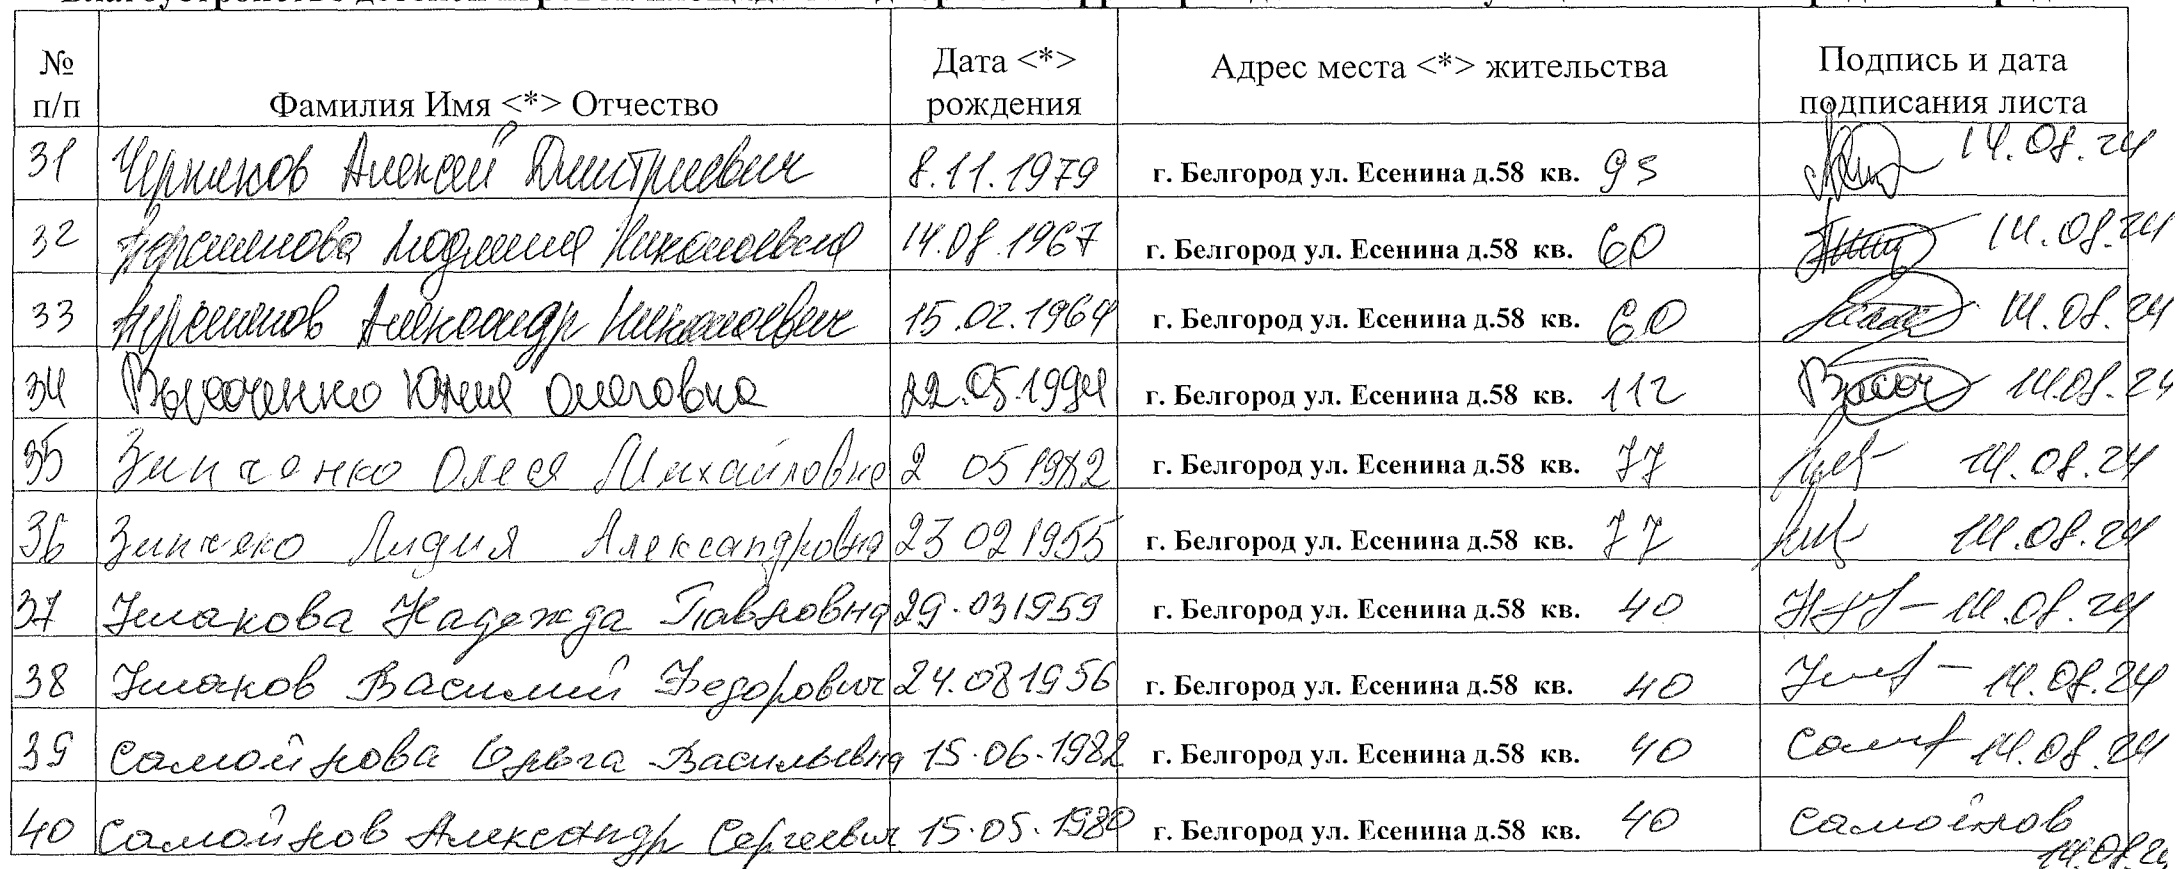 № п/п Фамилия Имя <*> Отчество Дата <*> рождения Адрес места <*> жительства Подпись и дата подписания листа
31 Черников Алексей Дмитриевич 8.11.1979 г. Белгород ул. Есенина д.58 кв. 95 14.08.24
32 Людмила Николаевна 14.08.1967 г. Белгород ул. Есенина д.58 кв. 60 14.08.24
33 Александр Николаевич 15.02.1964 г. Белгород ул. Есенина д.58 кв. 60 14.08.24
34 Высоченко Юлия Олеговна 22.05.1994 г. Белгород ул. Есенина д.58 кв. 112 14.08.24
35 Зинченко Олеся Михайловна 2 05 1982 г. Белгород ул. Есенина д.58 кв. 77 14.08.24
36 Зинчеко Лидия Александровна 23 02 1955 г. Белгород ул. Есенина д.58 кв. 77 14.08.24
37 Ушакова Надежда Павловна 29.03 1959 г. Белгород ул. Есенина д.58 кв. 40 14.08.24
38 Ушаков Василий Федорович 24.08 1956 г. Белгород ул. Есенина д.58 кв. 40 14.08.24
39 Самойлова Ольга Васильевна 15.06.1982 г. Белгород ул. Есенина д.58 кв. 40 14.08.24
40 Самойлов Александр Сергеевич 15.05.1980 г. Белгород ул. Есенина д.58 кв. 40 Самойлов
14.08.24